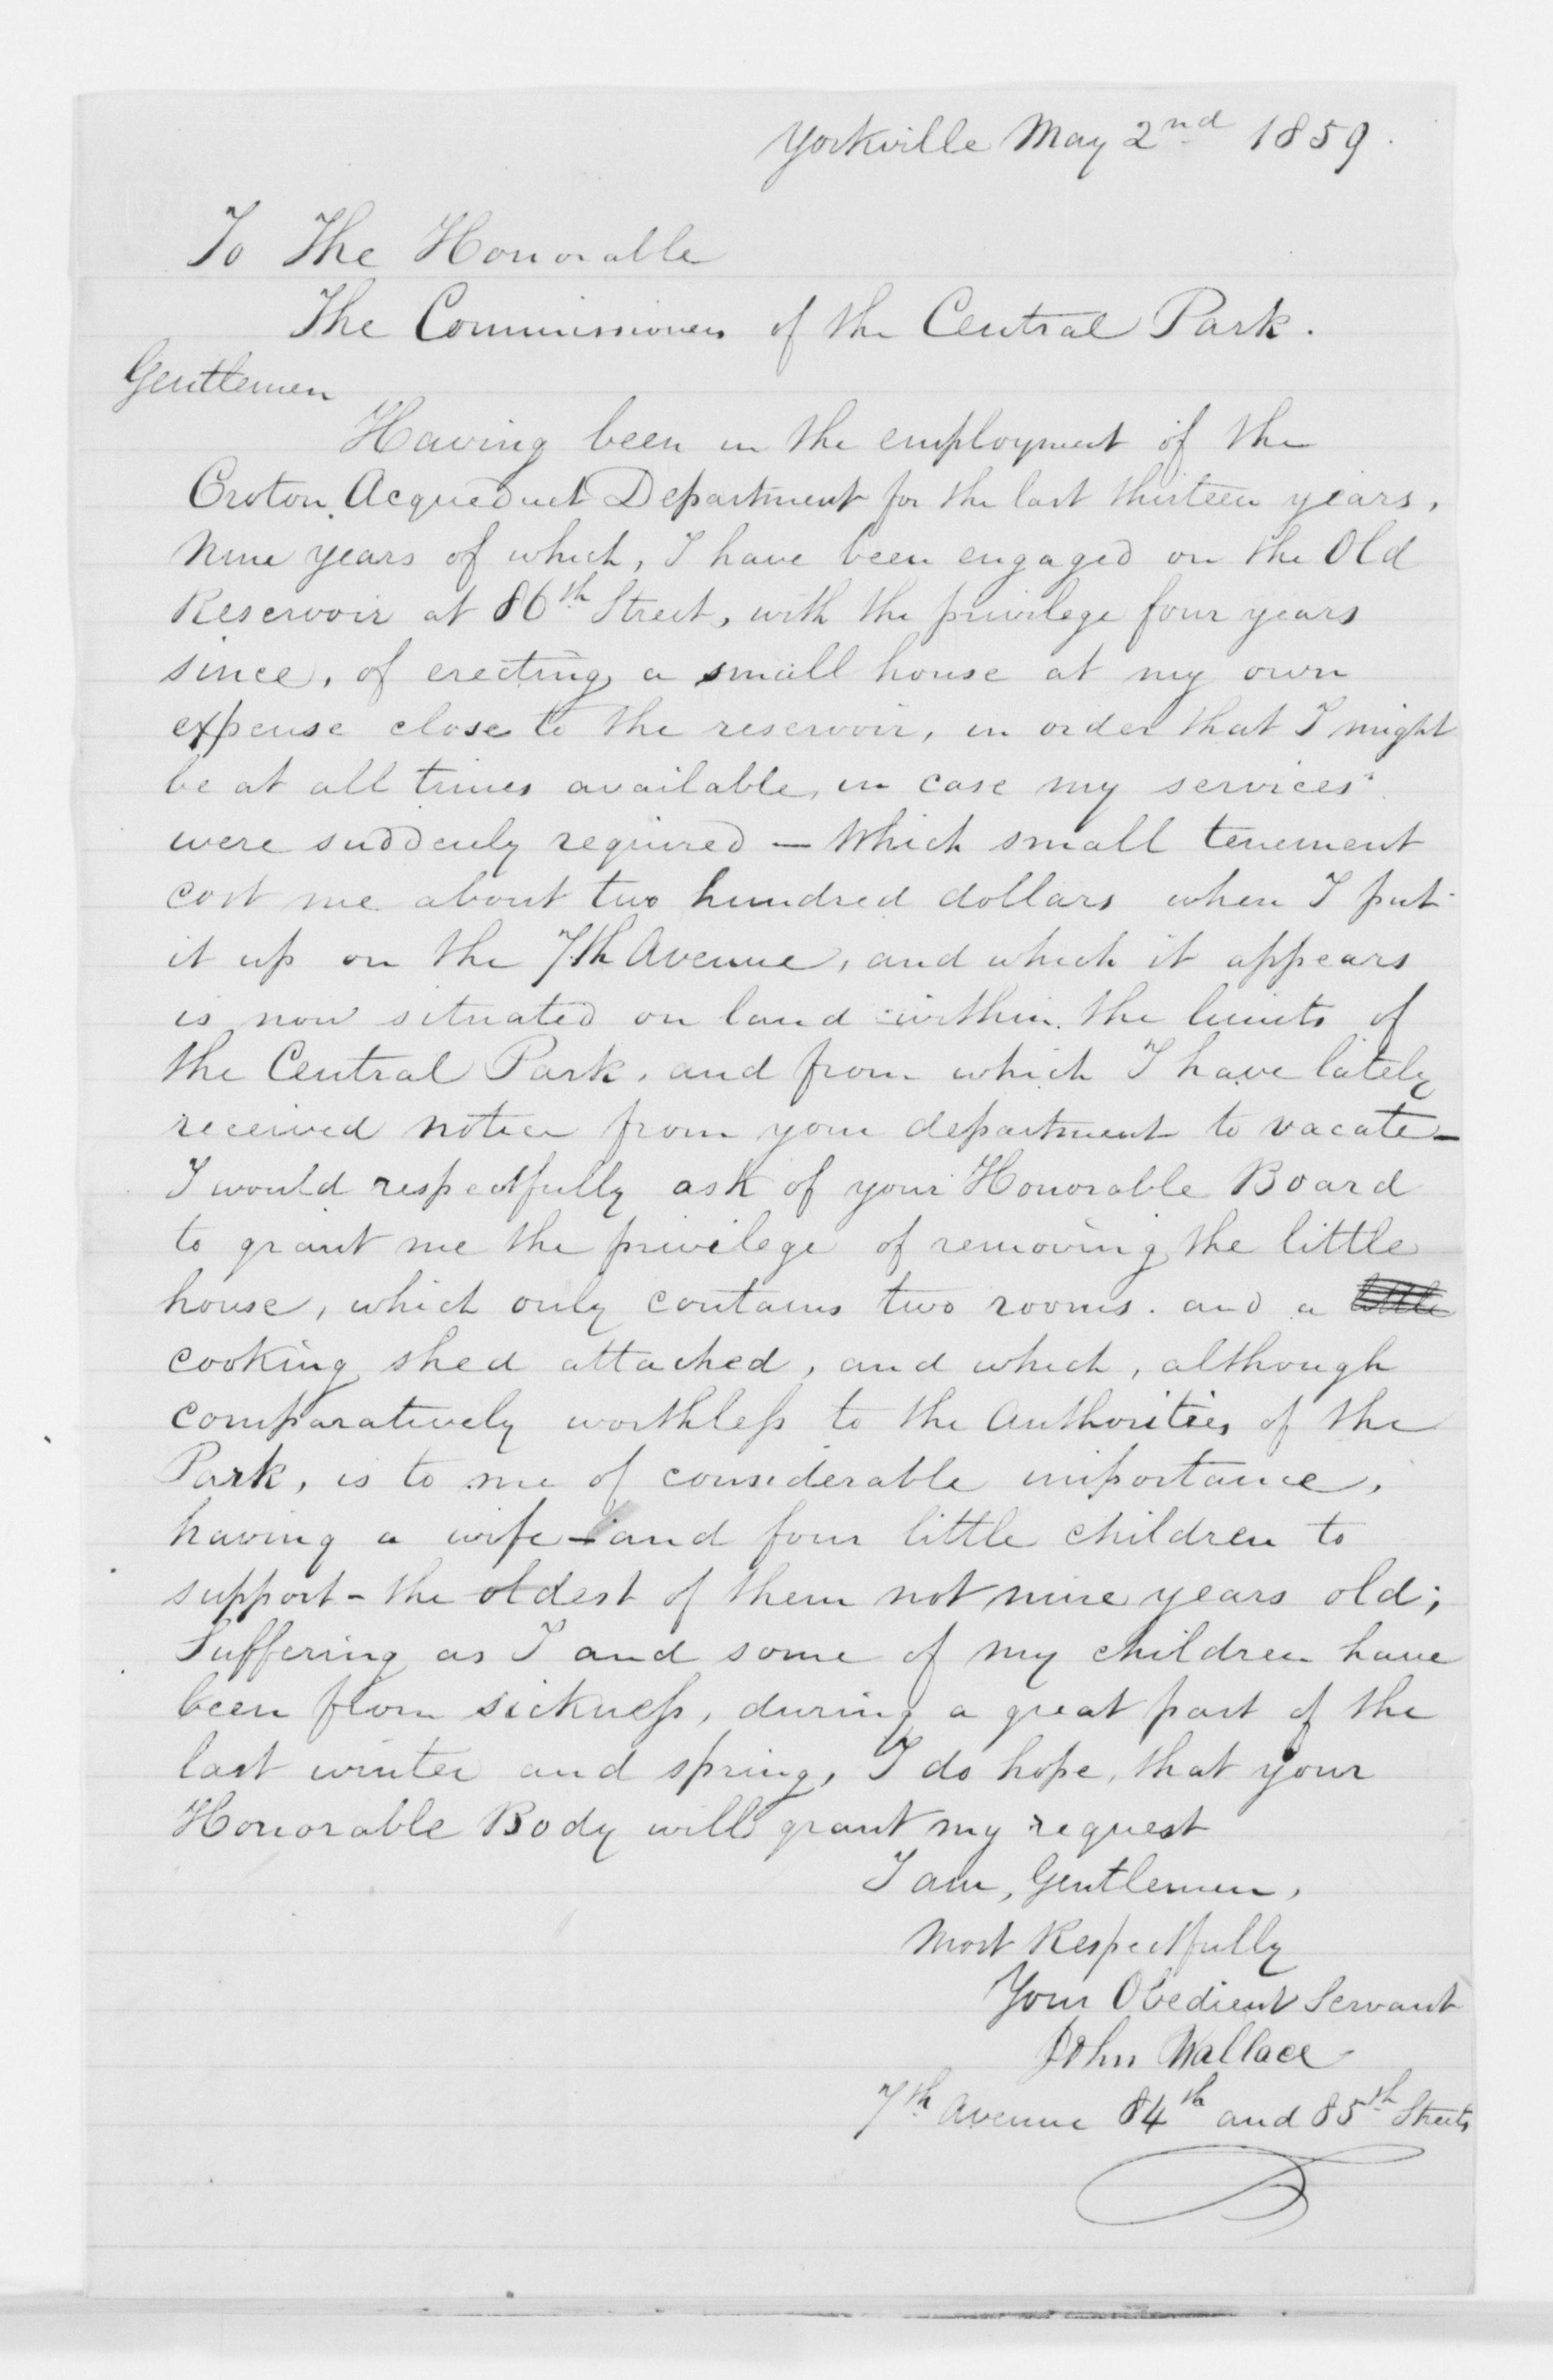 Yorkville May 2nd 1859.
To The Honorable
The Commissioners of the Central Park.
Gentlemen
Having been in the employment of the
Croton Acqueduct Department for the last thirteen years,
nine years of which, I have been engaged on the Old
Reservoir at 86th Street, with the privilege four years
since, of erecting a small house at my own
expense close to the reservoir, in order that I might
be at all times available, in case my services
were suddenly required — Which small tenement
cost me about two hundred dollars when I put
it up on the 7th Avenue, and which it appears
is now situated on land within the limits of
the Central Park, and from which I have lately
received notice from your department to vacate —
I would respectfully ask of your Honorable Board
to grant me the privilege of removing the little
house, which only contains two rooms. and a little
cooking shed attached, and which, although
comparatively worthless to the Authorities of the
Park, is to me of considerable importance,
having a wife - and four little children to
support - the oldest of them not nine years old;
Suffering as I and some of my children have
been from sickness, during a great part of the
last winter and spring, I do hope, that your
Honorable Body will grant my request
I am, Gentlemen,
Most Respectfully
Your Obedient Servant
John Wallace
7th Avenue 84th and 85th Streets